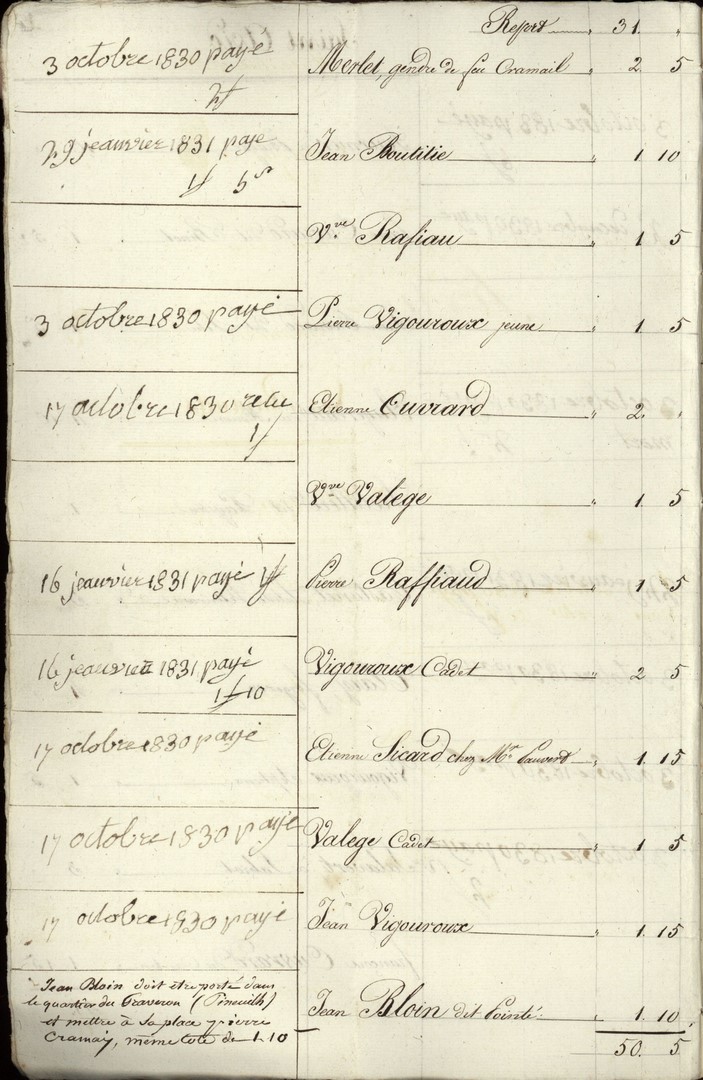 Report 31. "
3 octobre 1830 payé Merlet, gendre de feu Cramail " 2. 5
2f
29 jeanvier 1831 payé Jean Boutitie " 1. 10
1f 5s
Vve Rafiau " 1 5
3 octobre 1830 payé Pierre Vigouroux jeune " 1. 5
17 octobre 1830 Etienne Ouvrard " 2. "
1f
Vve Valège " 1. 5
16 jeanvier 1831 payé 1f Pierre Raffiaud " 1. 5
16 jeanvier 1831 payé Vigouroux Cadet " 2 5
1f 10
17 octobre 1830 payé Etienne Sicard chez Mr " 1. 15
17 octobre 1830 payé Valege Cadet " 1 5
17 octobre 1830 payé Jean Vigouroux " 1. 15
Jean Bloin doit etre porté dans
le quartier du (Pineuilh)
et mettre à sa place pierre
Cramay, même cote de 1.10
Jean Bloin dit Pointé. " 1. 10
50. 5